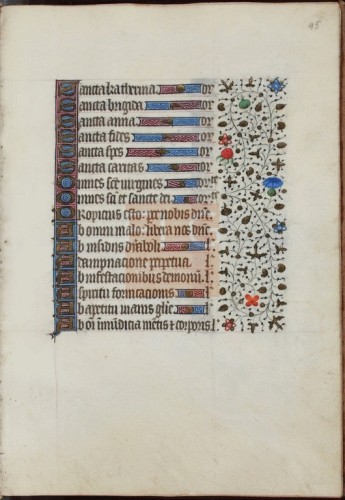 95
Sancta katherina. or
Sancta brigida or
Sancta anna or
Sancta fides or
Sancta spes or
Sancta caritas or
Omnes sce virgines
Omnes sci et sancte dei
Propicius esto: pce nobis dne.
Ab omni malo: libera nos dne.
Ab insidiis dyaboli
A dampnacione perpetua. l'.
Ab infestacionibus demonu. l'.
A spiritu fornicacionis
Ab appetitu inanis glie
Ab oi inmudicia metis et corporis. l'.